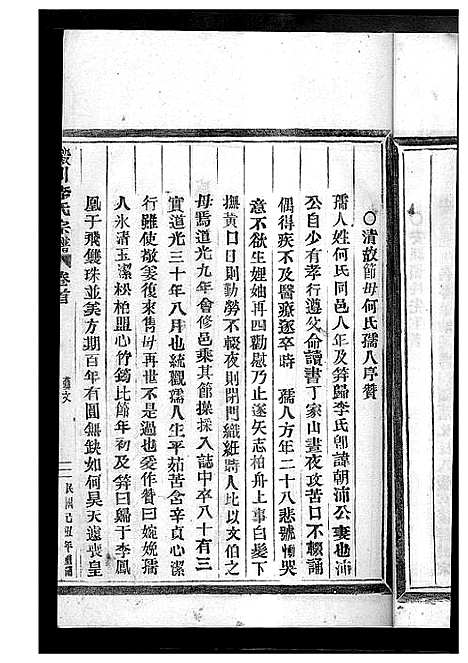 ○清故節母何氏孺人序贊
孺人姓何氏同邑人年及笄歸李氏卽諱朝浦公妻也浦
公自少有孝行遵父命讀書丁家山晝夜攻苦口不輟誦
偶得疾不及醫療遂卒時 孺人方年二十八悲號慟哭
意不欲生娌妯再四勸慰乃止遂矢志柏舟上事白髮下
撫黃口日則勤勞不輟夜則閉門織紝時人比以文伯之
母焉道光九年會修邑乘其節操採入誌中卒八十有三
實道光三十年八月也統觀孺人生平茹苦含辛貞心潔
行雖使敬姜復來雋母再世不是過也爰作贊曰婉娩孺
人氷清玉潔松柏盟心竹筠比節年初及笄曰歸于李鳳
凰于飛雙珠並美方期百年有圓無缺如何昊天遽喪皇
川李氏宗譜 卷首 民國己丑年重